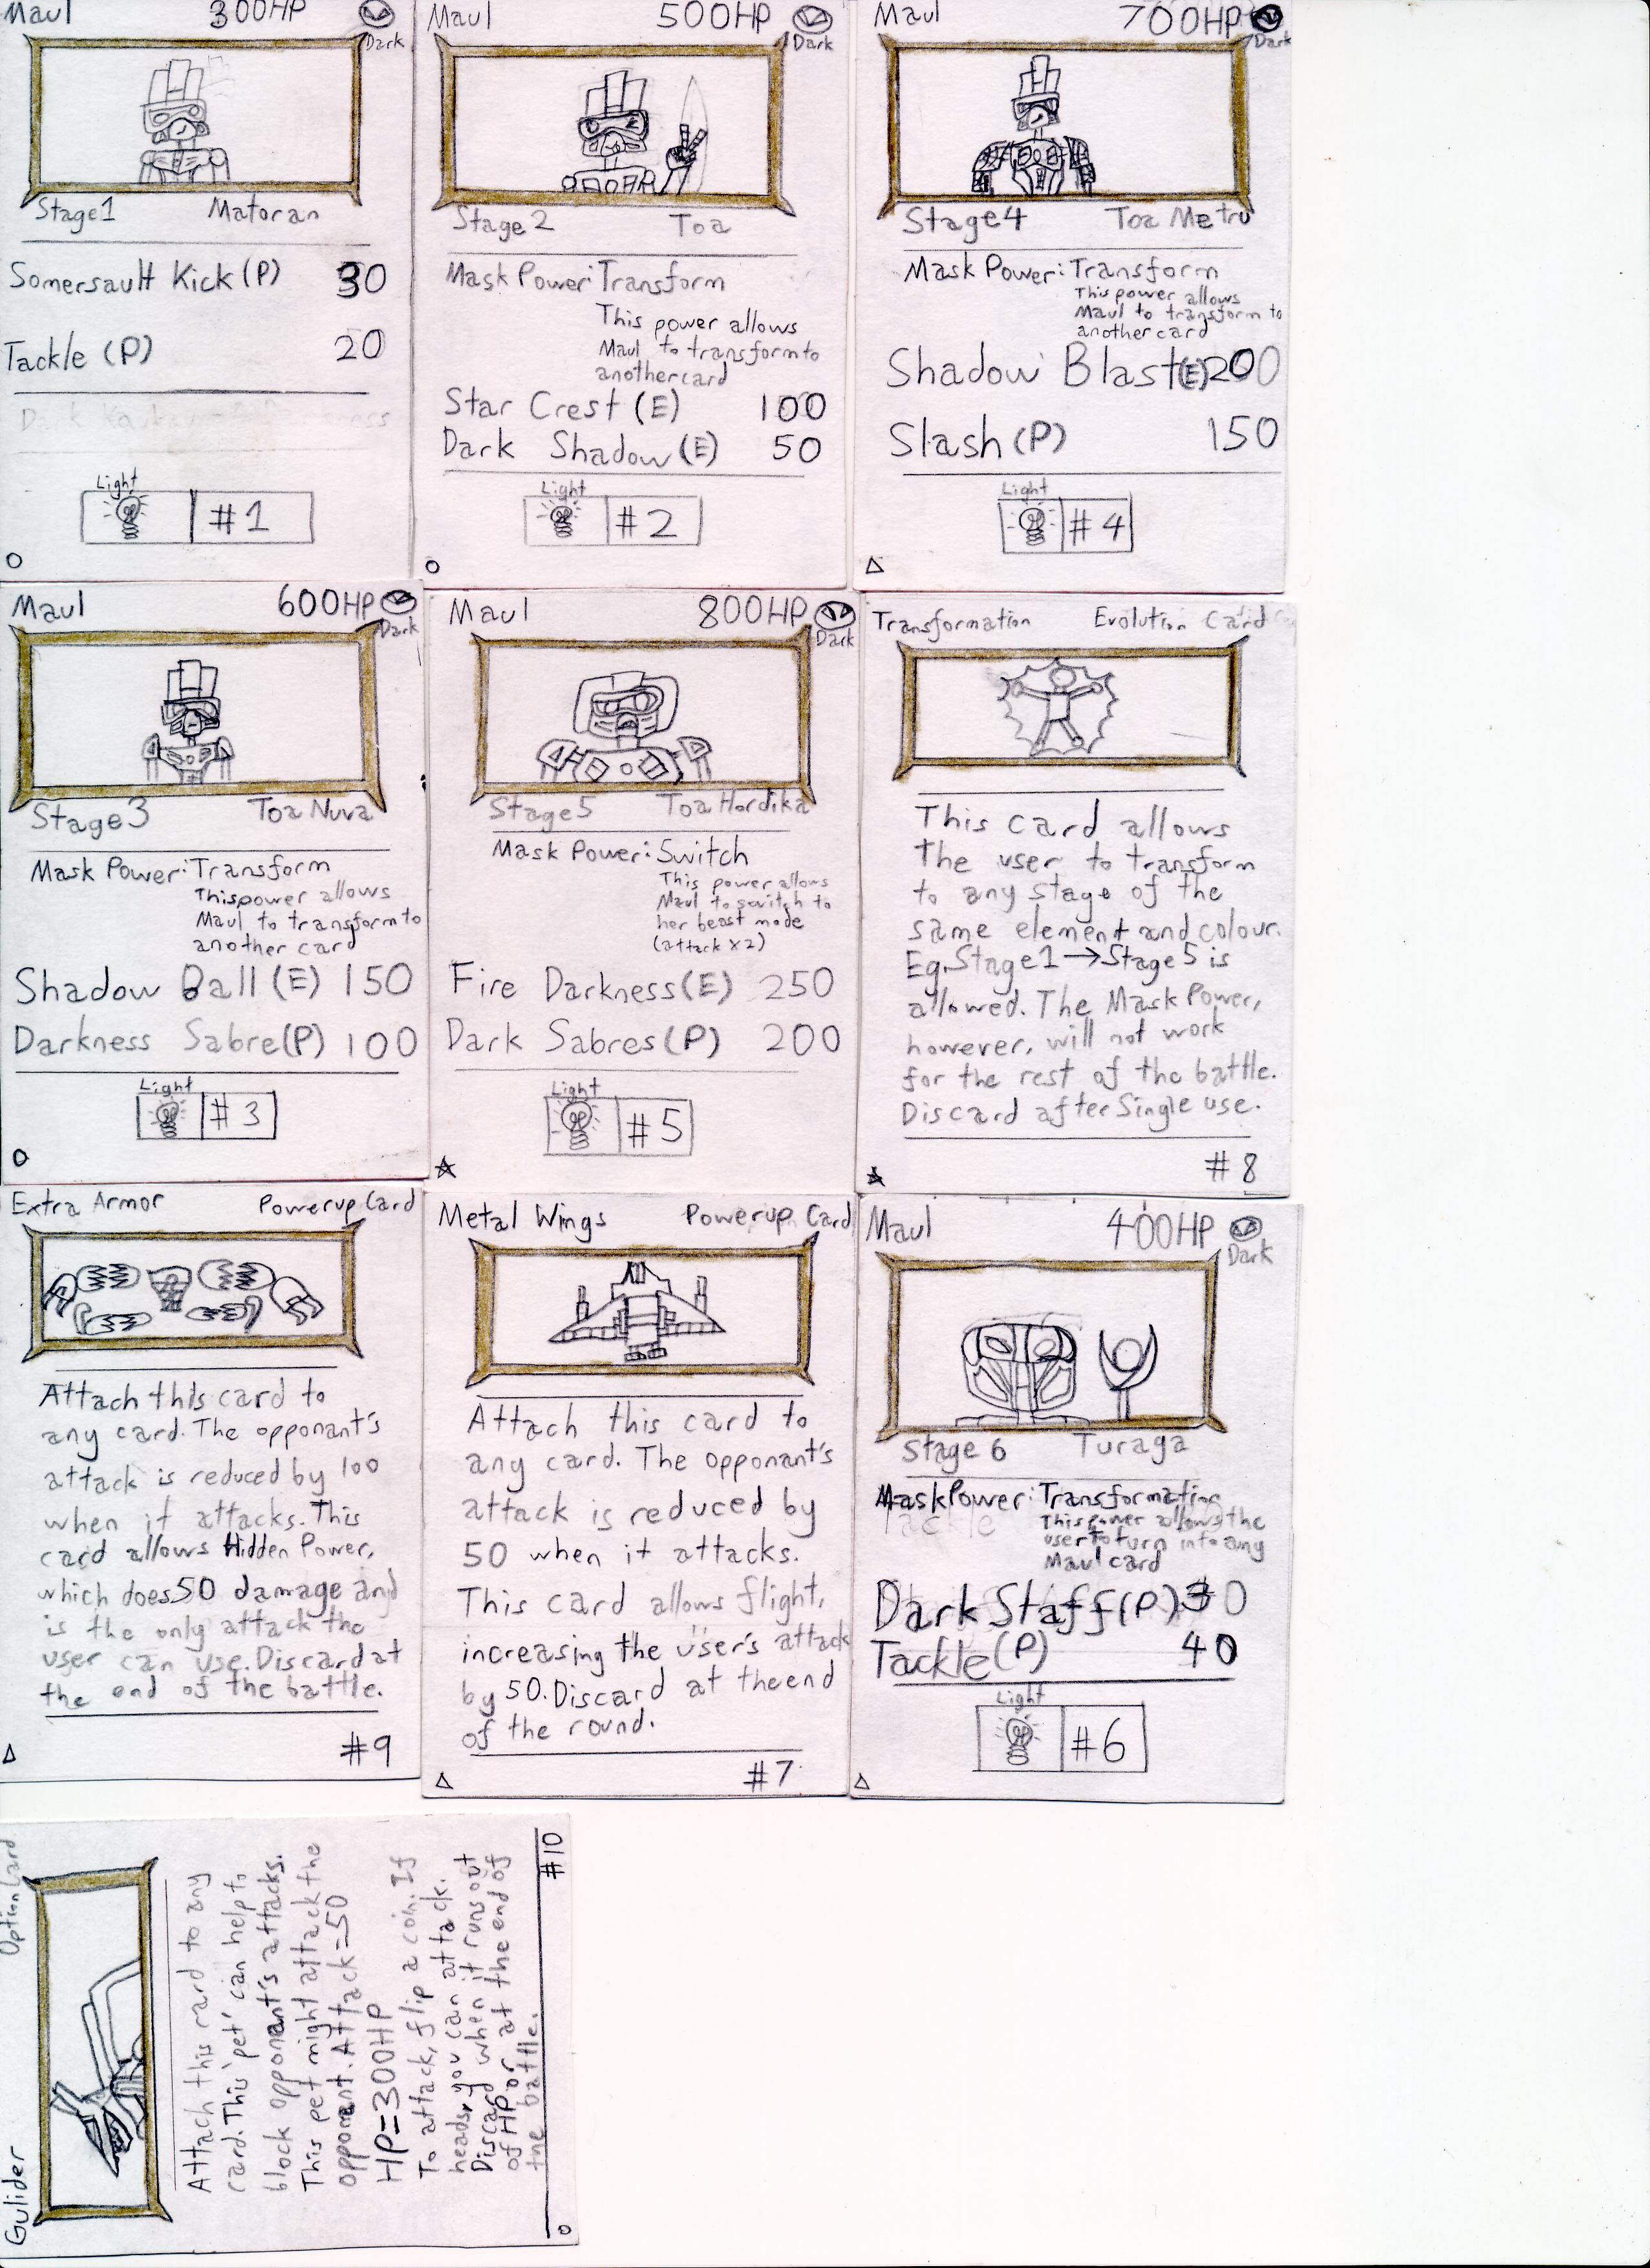 Maul 300HP
Dark
Stage1 Matoran
Somersault Kick(P) 30
Tackle (P) 20
Light
#1
Maul 500HP
Dark
Stage 2 Toa
Mask Power: Transform
This power allows
Maul to transform to
another card
Star Crest (E) 100
Dark Shadow (E) 50
Light
#2
Maul 700HP
Dark
Stage4 Toa Metru
Mask Power: Transform
This power allows
Maul to transform to
another card
Shadow Blast(E)200
Slash (P) 150
Light
#4
Maul 600HP
Dark
Stage3 Toa Nuva
Mask Power: Transform
This power allows
Maul to transform to
another card
Shadow Ball (E) 150
Darkness Sabre(P) 100
Light
#3
Maul 800HP
Dark
Stage5 Toa Hordika
Mask Power: Switch
This power allows
Maul to switch to
her beast mode
(attack x2)
Fire Darkness(E) 250
Dark Sabres (P) 200
Light
#5
Transformation Evolution Card
This card allows
the user to transform
to any stage of the
same element and colour.
Eg. Stage1→Stage5 is
allowed. The Mask Power,
however, will not work
for the rest of the battle.
Discard after Single use.
#8
Extra Armor Powerup Card
Attach this card to
any card. The opponant's
attack is reduced by 100
when it attacks. This
card allows Hidden Power,
which does 50 damage and
is the only attack the
user can use. Discard at
the end of the battle.
#9
Metal Wings Powerup Card
Attach this card to
any card. The opponant's
attack is reduced by
50 when it attacks.
This card allows flight,
increasing the user's attack
by 50. Discard at the end
of the round.
#7
Maul 400HP
Dark
Stage 6 Turaga
Mask Power: Transformation
This power allows the
user to turn into any
Maul card
Dark Staff(P) 30
Tackle (P) 40
Light
#6
Gulider Option Card
Attach this card to any
card. This 'pet' can help to
block opponant's attacks.
This pet might attack the
opponant. Attack=50
HP=300HP
To attack, flip a coin. If
heads, you can attack.
Discard when it runs out
of HP or at the end of
the battle.
#10